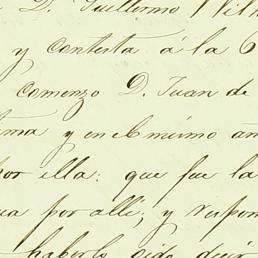 D. Guillermo Wil
y contesta á la 6
comenzo D. Juan de
y en el mismo an
por ella: que fue la
por alli; y respon
haberlo oido decir